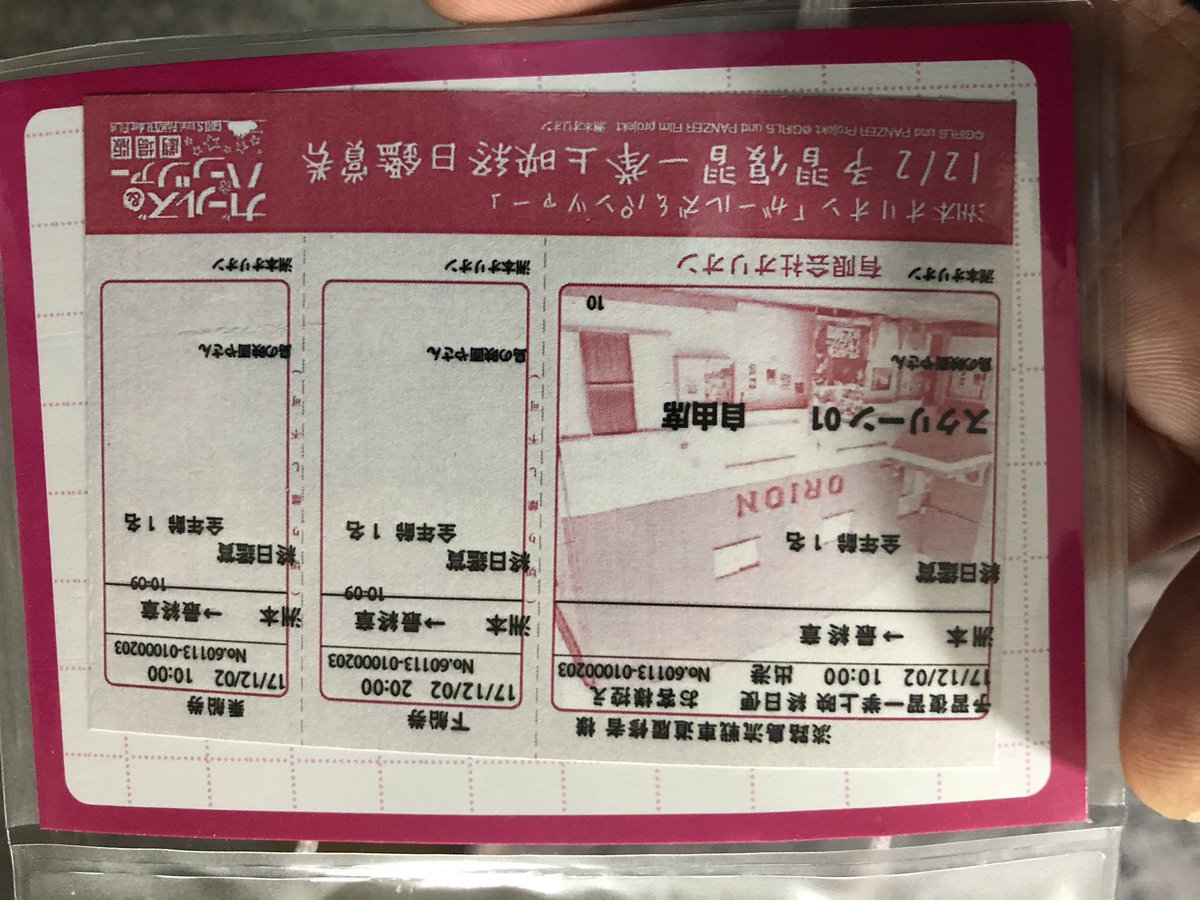 淡路島流戦車道履修者 様
予習復習一挙上映 終日便 お客様控え
17/12/02 10:00 出港 No.60113-01000203
洲本 → 最終章
終日鑑賞
全年齢 1 名
ORION
スクリーン 01 自由席
島の映画やさん
10
洲本オリオン 有限会社オリオン
下船券
17/12/02 20:00
No.60113-01000203
洲本 → 最終章
10-09
終日鑑賞
全年齢 1 名
島の映画やさん
洲本オリオン
乗船券
17/12/02 10:00
No.60113-01000203
洲本 → 最終章
10-09
終日鑑賞
全年齢 1 名
島の映画やさん
洲本オリオン
洲本オリオン「ガールズ&パンツァー」
12/2 予習復習一挙上映終日鑑賞券
©GIRLS und PANZER Projekt ©GIRLS und PANZER Film projekt 洲本オリオン
ガールズ&
パンツァー
劇場版
GIRLS und PANZER der FILM